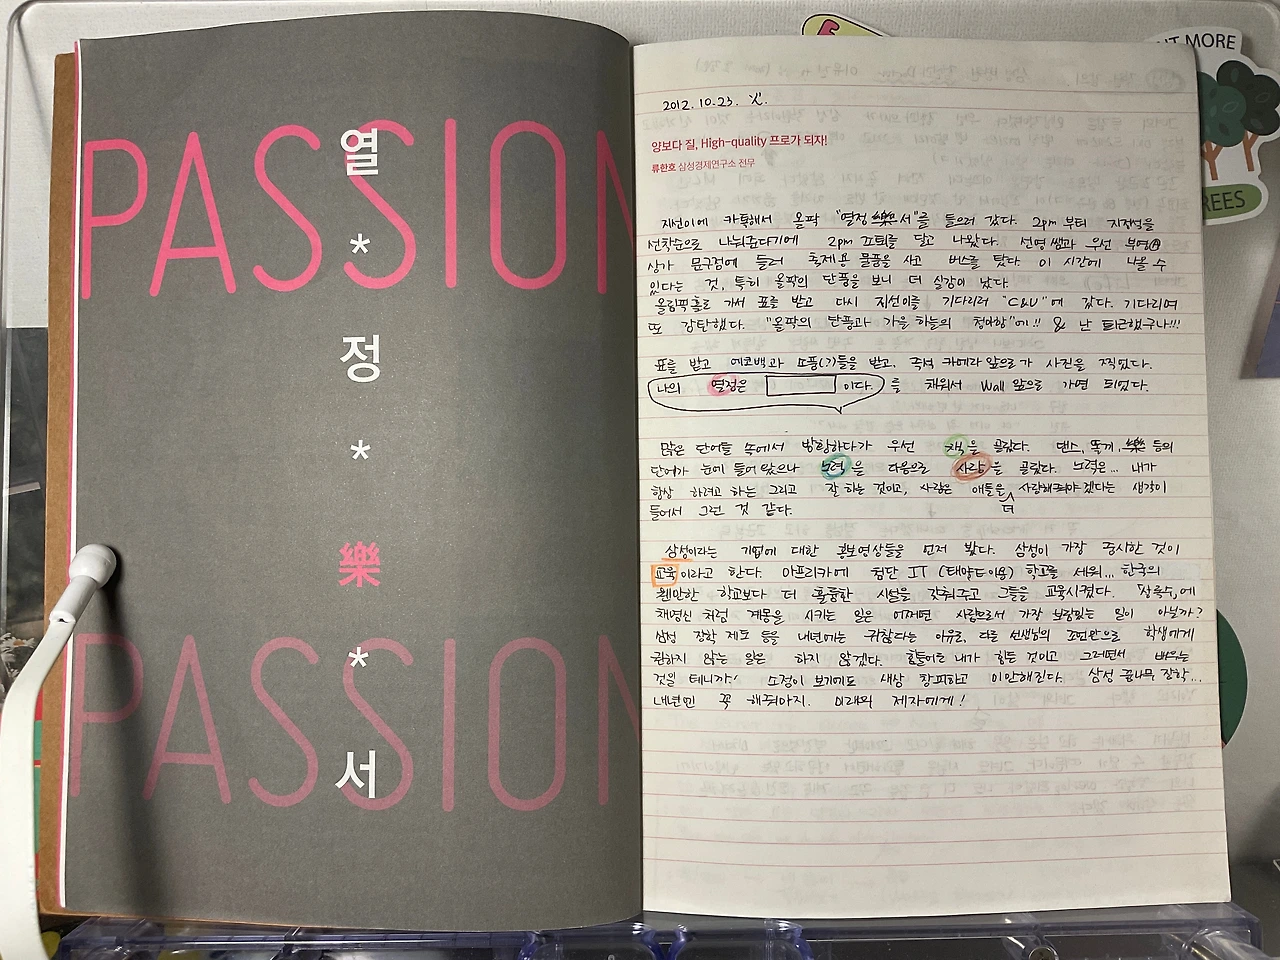 PASSION
열
*
정
*
樂
*
서
PASSION
2012. 10. 23. 火.
양보다 질, High-quality 프로가 되자!
류한호 삼성경제연구소 전무
지선이에 카톡해서 올팍 "열정樂서"를 들으러 갔다. 2pm 부터 지정석을
선착순으로 나눠준다기에 2pm 조퇴를 달고 나왔다. 선영쌤과 우선 부영
상가 문구점에 들러 축제용 물품을 사고 버스를 탔다. 이 시간에 나올 수
있다는 것, 특히 올팍의 단풍을 보니 더 실감이 났다.
올림픽홀로 가서 표를 받고 다시 지선이를 기다리러 "C&U"에 갔다. 기다리며
또 감탄했다. "올팍의 단풍과 가을 하늘의 청아함"에!! & 난 퇴근했구나!!!
표를 받고 에코백과 소품(?)들을 받고, 즉석 카메라 앞으로 가 사진을 찍었다.
나의 열정은 이다. 를 채워서 Wall 앞으로 가면 되었다.
많은 단어들 속에서 방황하다가 우선 책을 골랐다. 댄스, 뚫게, 樂 등의
단어가 눈에 들어왔으나 노력을 다음으로 사랑을 골랐다. 노력은... 내가
항상 하려고 하는 그리고 잘 하는 것이고, 사랑은 애들을 사랑해줘야겠다는 생각이
더
들어서 그런 것 같다.
삼성이라는 기업에 대한 홍보영상들을 먼저 봤다. 삼성이 가장 중시한 것이
교육이라고 한다. 아프리카에 첨단 IT (태양E이용) 학교를 세워... 한국의
웬만한 학교보다 더 훌륭한 시설을 갖춰주고 그들을 교육시켰다. 「상록수」에
채영신 처럼 계몽을 시키는 일은 어쩌면 사람으로서 가장 보람있는 일이 아닐까?
삼성 장학 제도 등을 내년에는 귀찮다는 이유로, 다른 선생님의 조언만으로 학생에게
권하지 않는 일은 하지 않겠다. 힘들어도 내가 힘든 것이고 그러면서 배우는
것일 테니까! 소정이 보기에도 새삼 창피하고 미안해진다. 삼성 꿈나무 장학...
내년엔 꼭 해줘야지. 미래의 제자에게!
UT MORE
REES